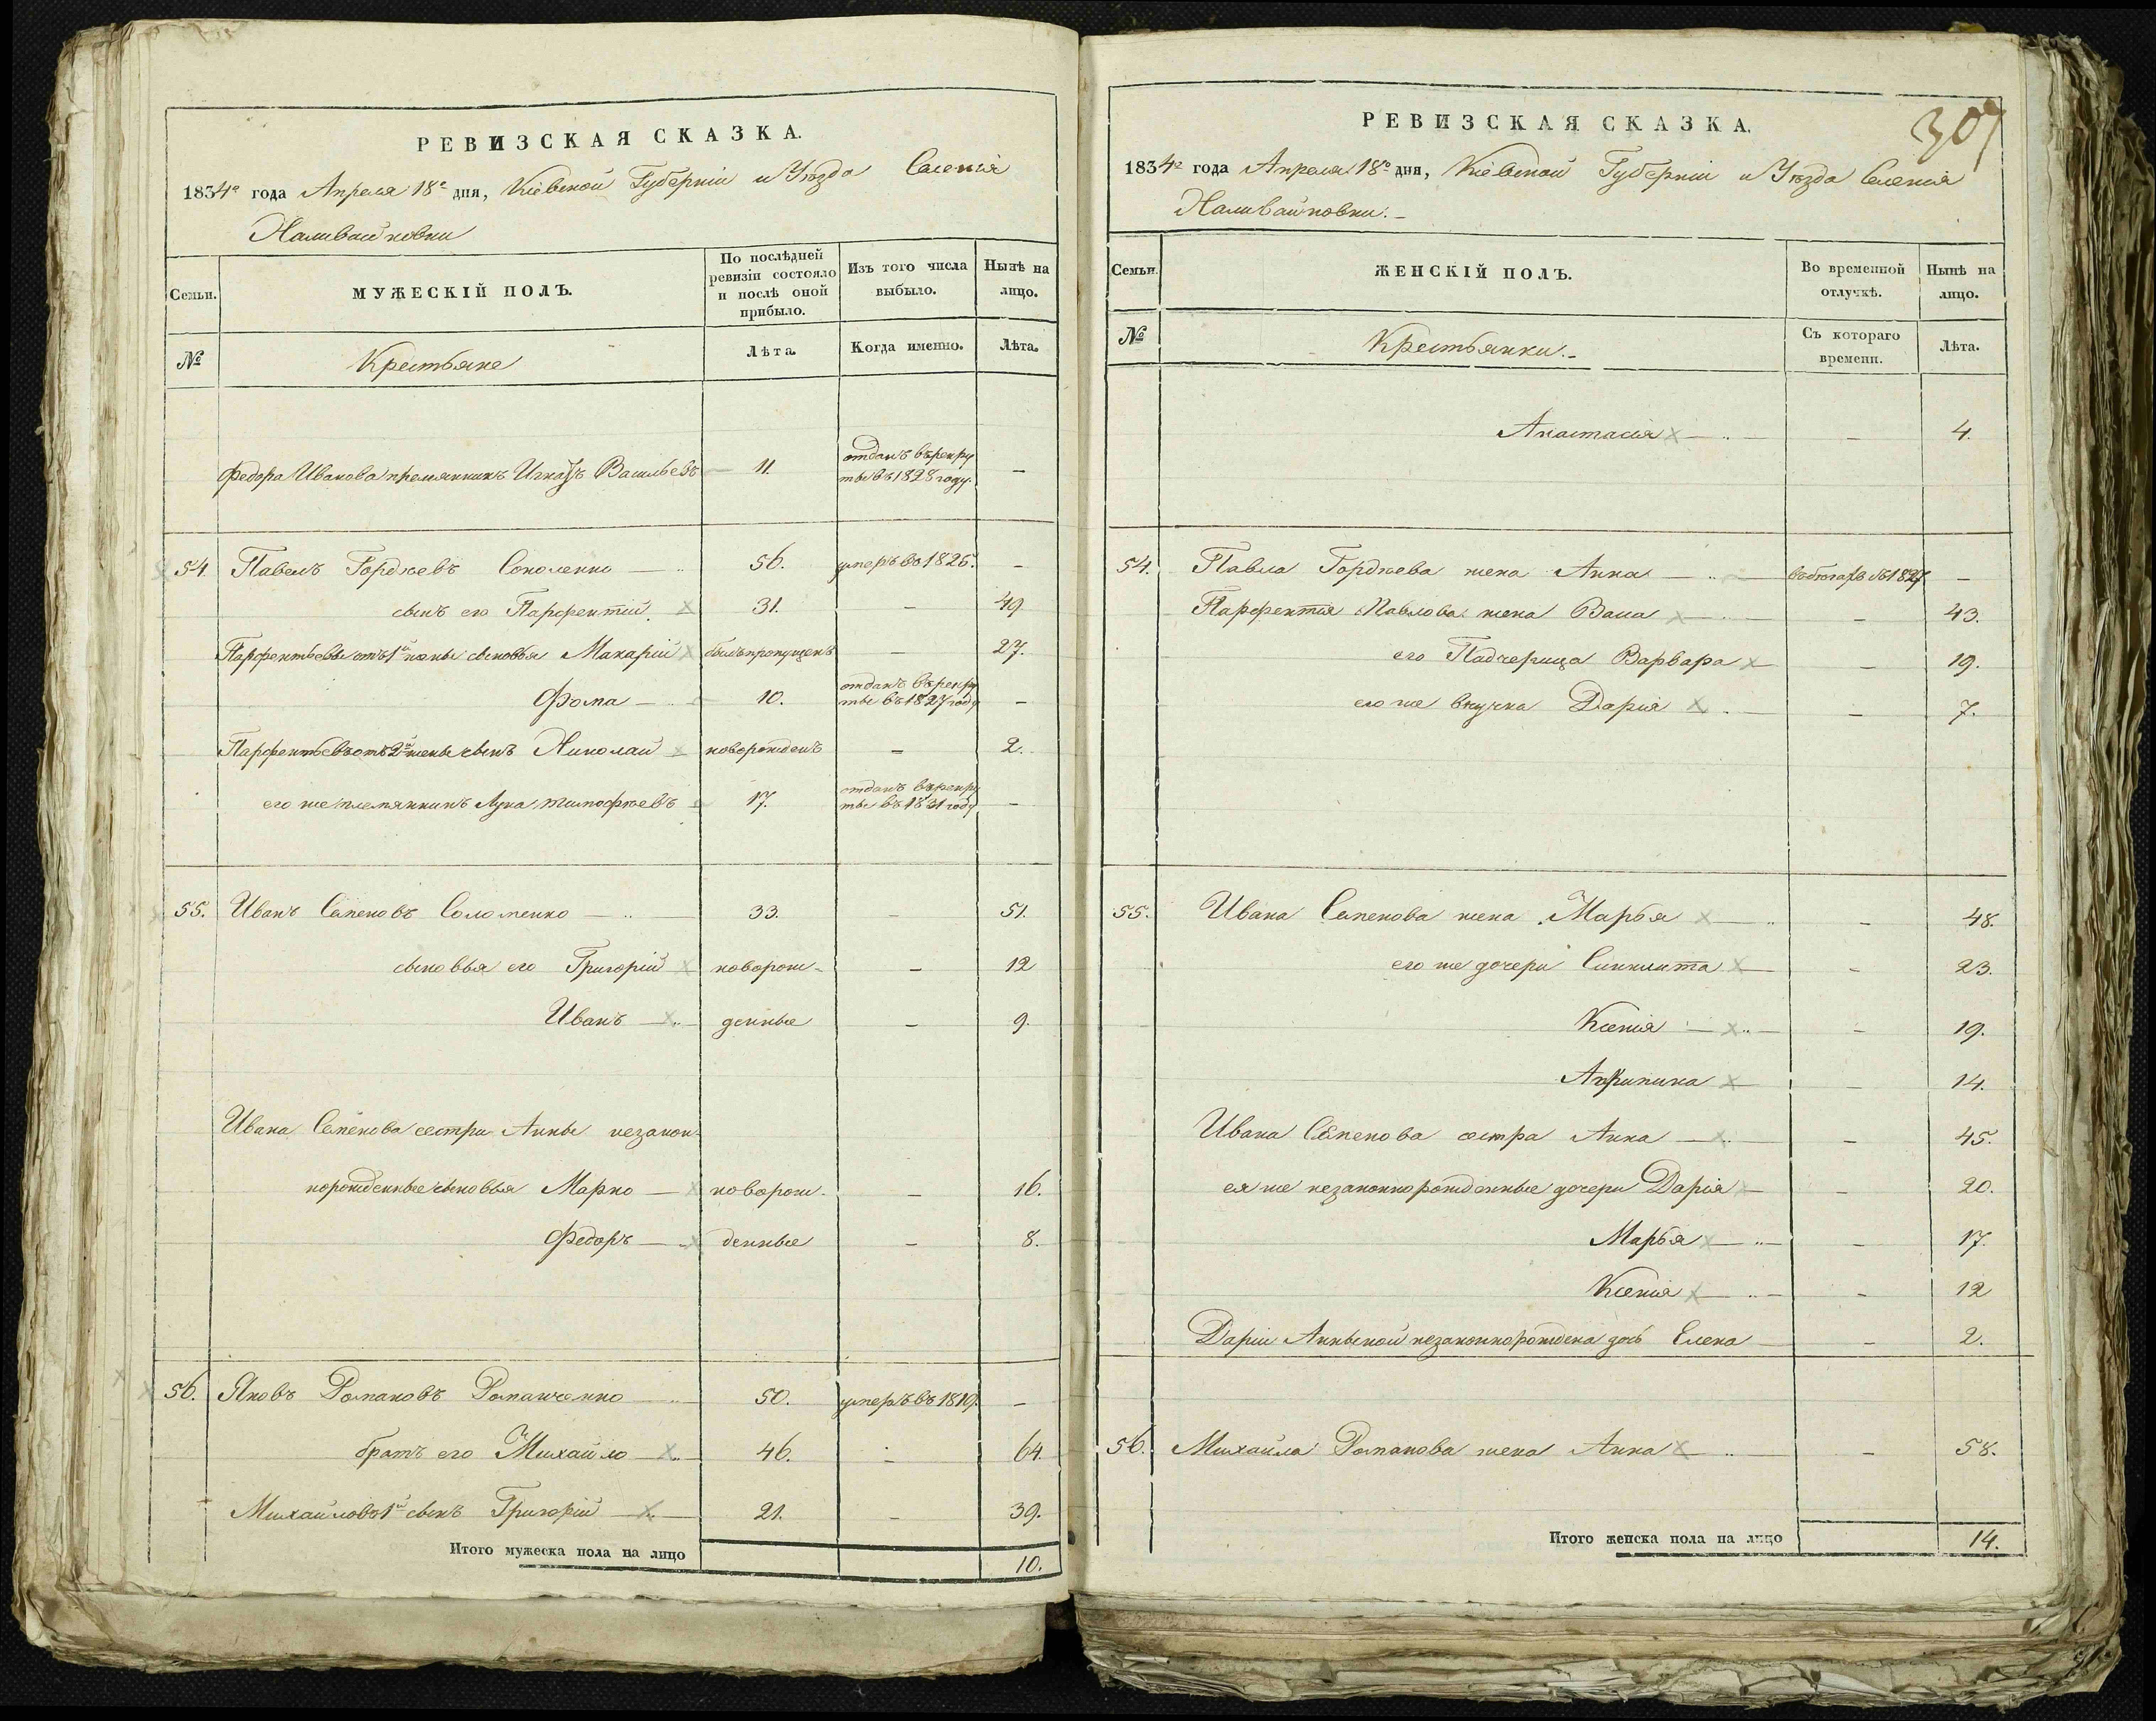 РЕВИЗСКАЯ СКАЗКА.
1834го года Апреля 18го дня, Кіевской Губерніи и Уѣзда Селенія
Наливайковки
Семьи.
МУЖЕСКІЙ ПОЛЪ.
По послѣдней
ревизіи состояло
и послѣ оной
прибыло.
Изъ того числа
выбыло.
Нынѣ на
лицо.
№
Крестьяне
Лѣта.
Когда именно.
Лѣта.
Федора Иванова племянникъ Игнатъ Васильевъ — 11. отданъ въ рекру
ты въ 1828 году. —
54. Павелъ Гордѣевъ Соколенко — 56. умеръ въ 1826. —
сынъ его Парфентій 31. — 49
Парфентьевы отъ 1й жены сыновья Макарій былъ пропущенъ — 27.
Фома — 10. отданъ въ рекру
ты въ 1827 году —
Парфентьевъ отъ 2й жены сынъ Николай новорожденъ — 2.
его же племянникъ Лука Тимофѣевъ 17. отданъ въ рекру
ты въ 1831 году —
55. Иванъ Семеновъ Соломенко — 33. — 51.
сыновья его Григорій новорож- — 12
Иванъ — денные — 9.
Ивана Семенова сестры Анны незакон-
норожденные сыновья Марко — новорож- — 16.
Федоръ — денные — 8.
56. Яковъ Романовъ Романченко — 50. умеръ въ 1819. —
братъ его Михайло — 46. — 64.
Михайловъ 1й сынъ Григорій — 21. — 39.
Итого мужеска пола на лицо 10.
307
РЕВИЗСКАЯ СКАЗКА.
1834го года Апреля 18го дня, Кіевской Губерніи и Уѣзда Селенія
Наливайковки. —
Семьи.
ЖЕНСКІЙ ПОЛЪ.
Во временной
отлучкѣ.
Нынѣ на
лицо.
№
Крестьянки. —
Съ котораго
времени.
Лѣта.
Анастасія — — 4.
54. Павла Гордѣева жена Анна — въ бѣгахъ съ 1827 —
Парфентія Павлова жена Васа — — 43.
его Падчерица Варвара — — 19.
его же внучка Дарія — — 7.
55. Ивана Семенова жена Марья — — 48.
его же дочери Синклита — — 23.
Ксенія — — 19.
Акрипина — — 14.
Ивана Семенова сестра Анна — — 45.
ея же незаконнорожденные дочери Дарія — — 20.
Марья — — 17.
Ксенія — — 12
Даріи Анньеной незаконнорождена дочь Елена — — 2.
56. Михайла Романова жена Анна — — 58.
Итого женска пола на лицо 14.